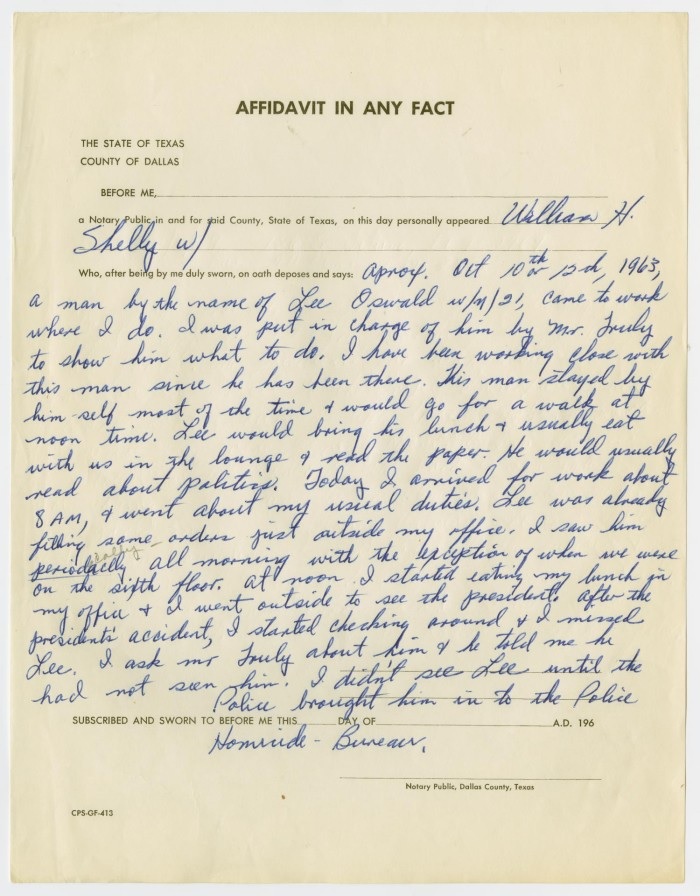 AFFIDAVIT IN ANY FACT
THE STATE OF TEXAS
COUNTY OF DALLAS
BEFORE ME,
a Notary Public in and for said County, State of Texas, on this day personally appeared William H.
Shelly w/
Who, after being by me duly sworn, on oath deposes and says: Aprox. Oct 10th or 12th, 1963,
a man by the name of Lee Oswald w/m/21, came to work
where I do. I was put in charge of him by Mr. Truly
to show him what to do. I have been working close with
this man since he has been there. This man stayed by
him-self most of the time & would go for a walk at
noon time. Lee would bring his lunch & usually eat
with us in the lounge & read the paper. He would usually
read about politics. Today I arrived for work about
8 AM, & went about my usual duties. Lee was already
filling some orders just outside my office. I saw him
periodically all morning with the exception of when we were
on the sixth floor. At noon I started eating my lunch in
my office & I went outside to see the president. After the
presidents' accident, I started checking around & I missed
Lee. I ask mr Truly about him & he told me he
had not seen him. I didn't see Lee until the
Police brought him in to the Police
SUBSCRIBED AND SWORN TO BEFORE ME THIS DAY OF A.D. 196
Homicide - Bureau.
Notary Public, Dallas County, Texas
CPS-GF-413